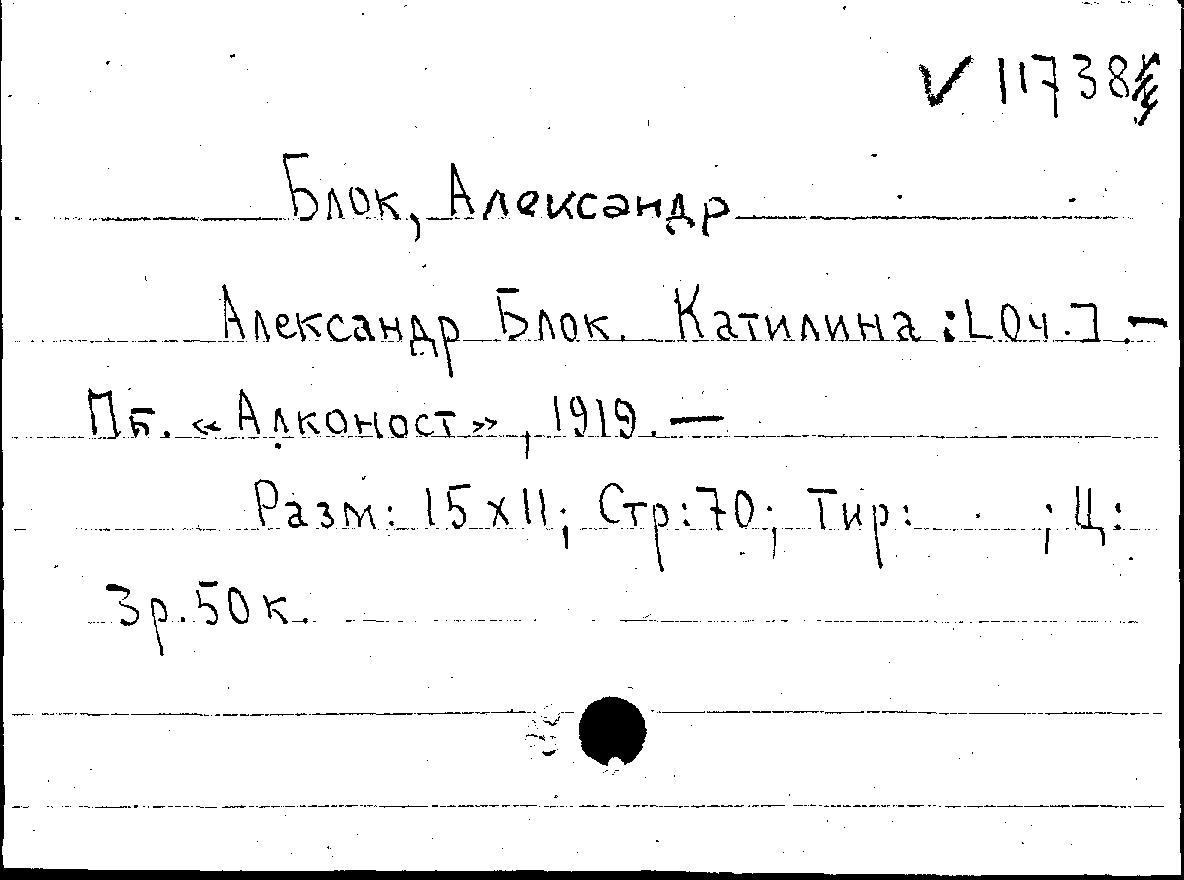 ✓ 11738
Блок, Александр
Александр Блок. Катилина : [Оч.] . —
Пб. «Алконост», 1919. —
Разм: 15х11; Стр: 70; Тир: ; Ц:
3р.50к.